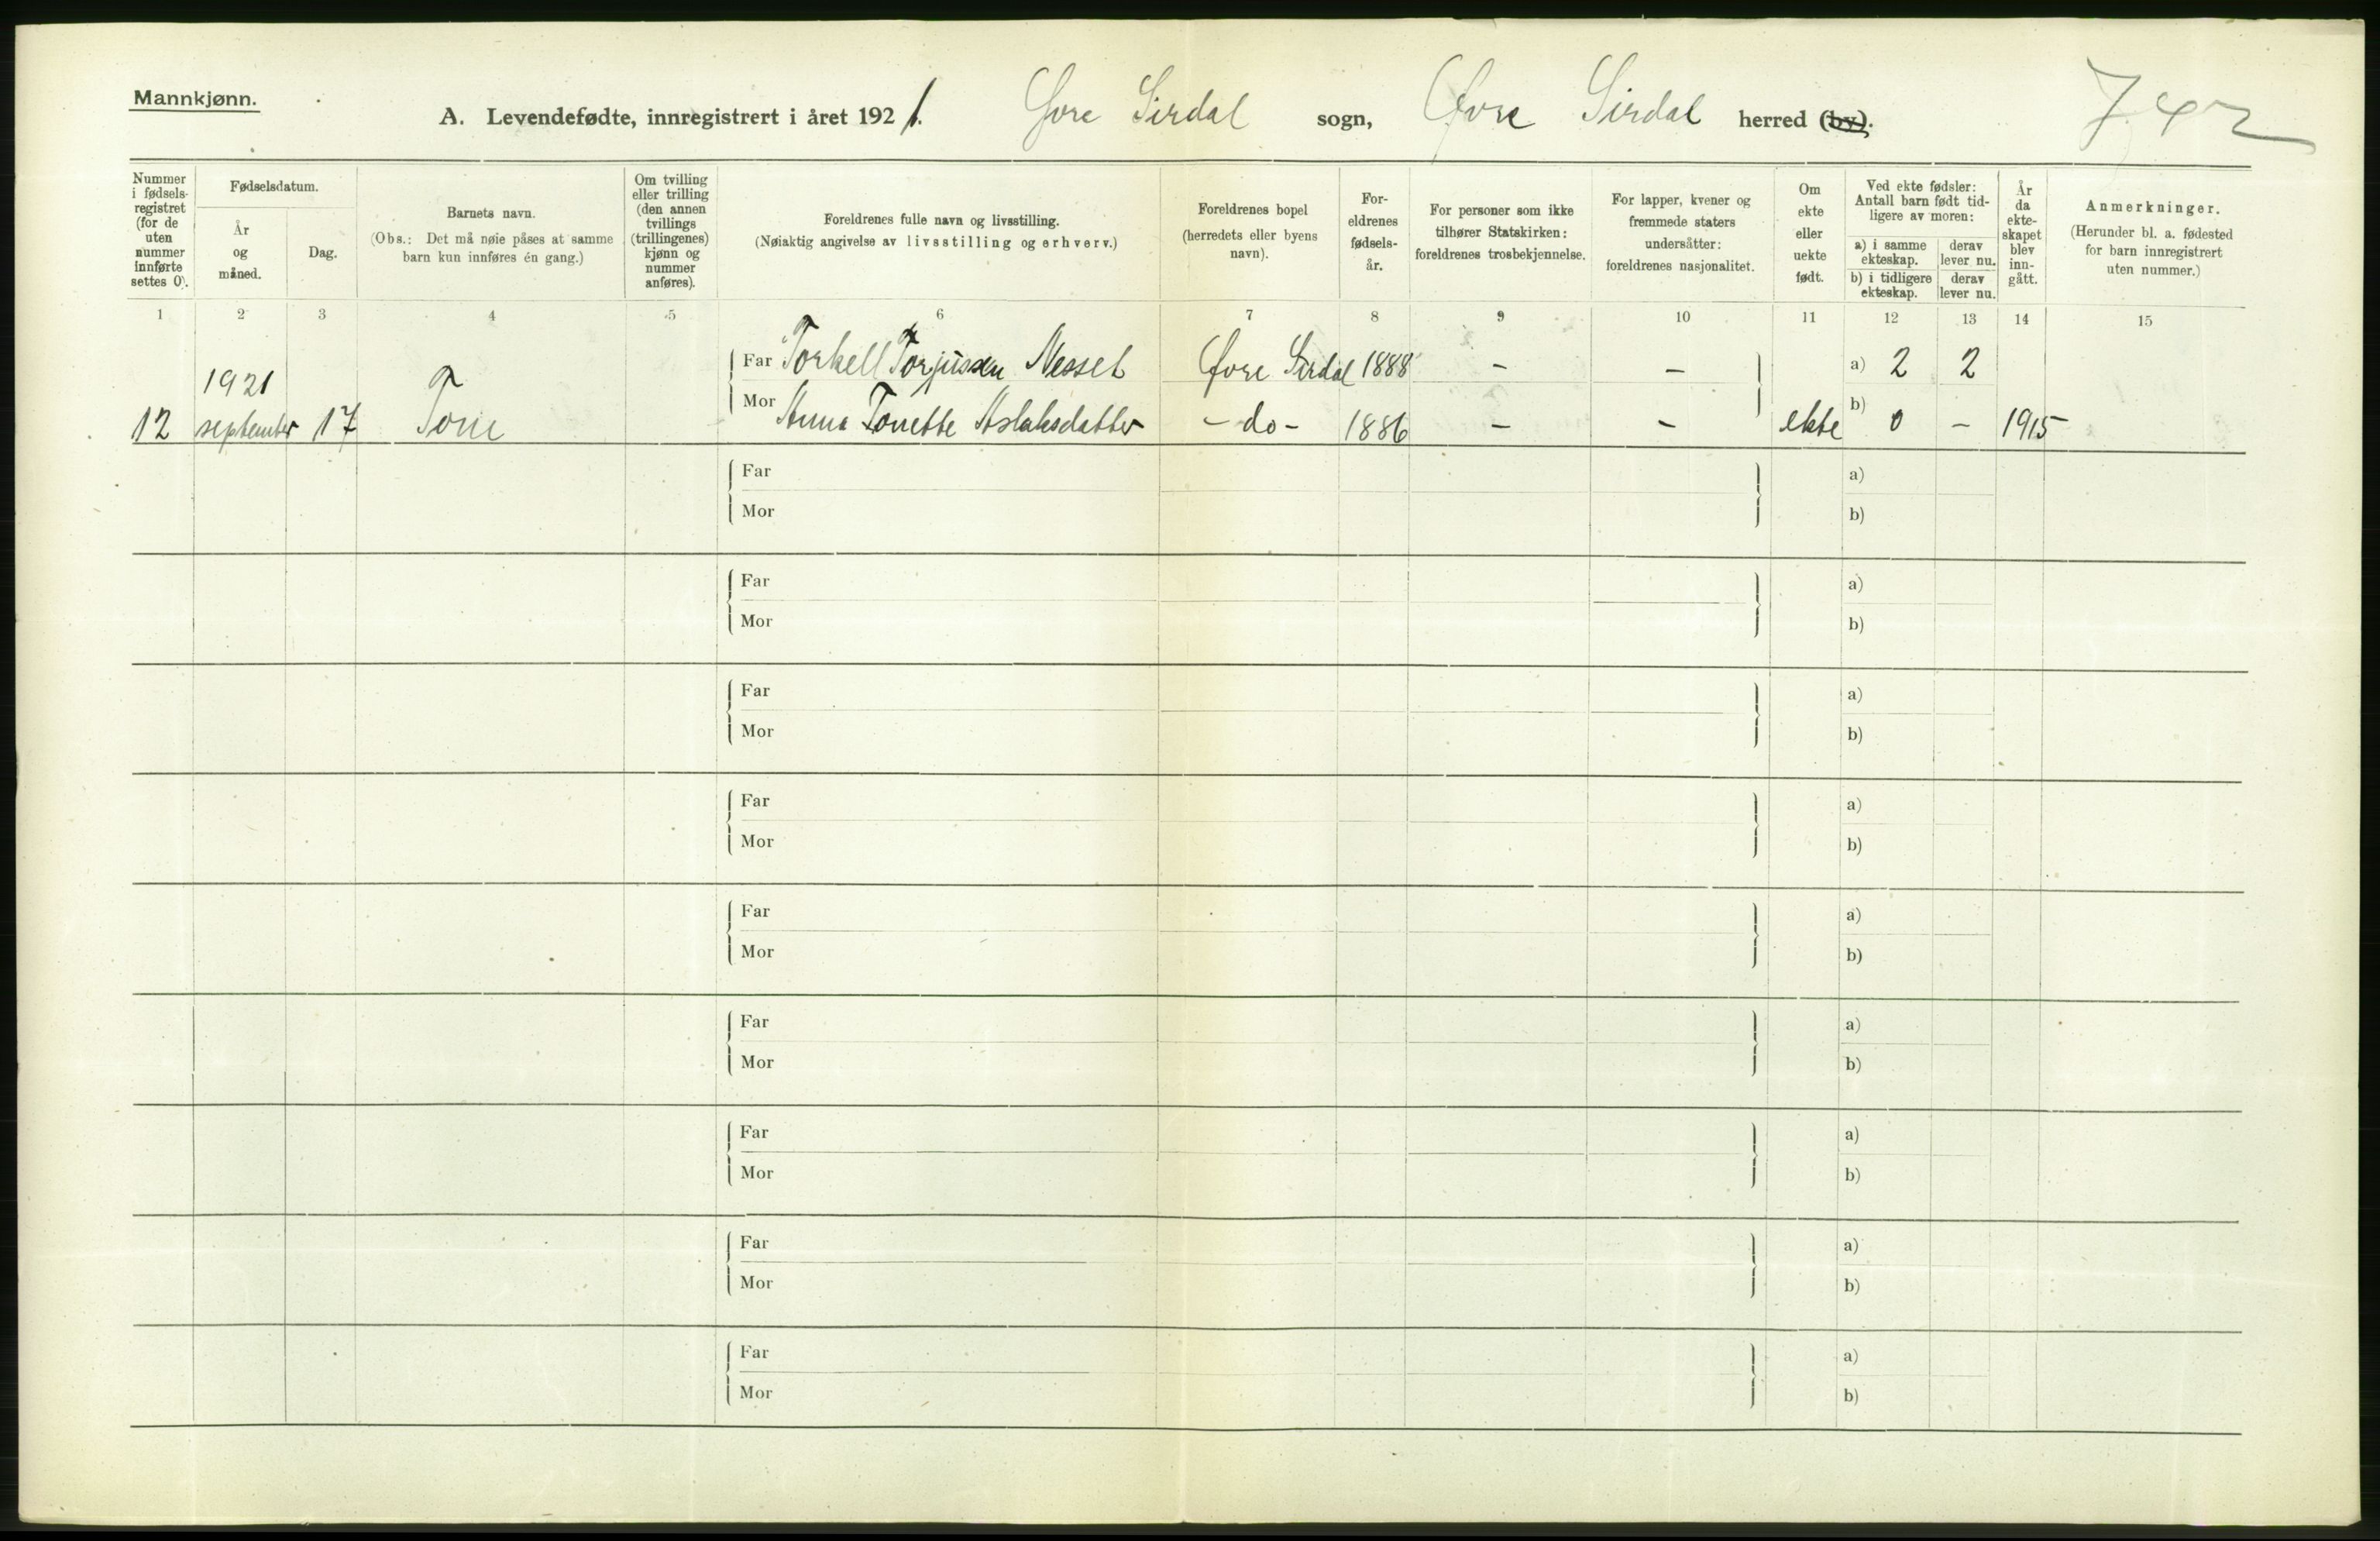 Mannkjønn.
A. Levendefødte, innregistrert i året 1921. Øvre Sirdal sogn, Øvre Sirdal herred (by).
742
Nummer i fødsels-registret (for de uten nummer innførte settes 0).
Fødselsdatum.
År og måned.
Dag.
Barnets navn.
(Obs.: Det må nøie påses at samme barn kun innføres én gang.)
Om tvilling eller trilling (den annen tvillings (trillingenes) kjønn og nummer anføres).
Foreldrenes fulle navn og livsstilling.
(Nøiaktig angivelse av livsstilling og erhverv.)
Foreldrenes bopel (herredets eller byens navn).
For-eldrenes fødsels-år.
For personer som ikke tilhører Statskirken: foreldrenes trosbekjennelse.
For lapper, kvener og fremmede staters undersåtter: foreldrenes nasjonalitet.
Om ekte eller uekte født.
Ved ekte fødsler: Antall barn født tid-ligere av moren:
a) i samme ekteskap.
derav lever nu.
b) i tidligere ekteskap.
derav lever nu.
År da ekte-skapet blev inn-gått.
Anmerkninger.
(Herunder bl. a. fødested for barn innregistrert uten nummer.)
1 2 3 4 5 6 7 8 9 10 11 12 13 14 15
1921 Far Torkell Torjussen Nesset Øvre Sirdal 1888 - - a) 2 2
12 september 17 Tone Mor Anna Tonette Aslaksdatter - do - 1886 - - ekte b) 0 - 1915
Far a)
Mor b)
Far a)
Mor b)
Far a)
Mor b)
Far a)
Mor b)
Far a)
Mor b)
Far a)
Mor b)
Far a)
Mor b)
Far a)
Mor b)
Far a)
Mor b)